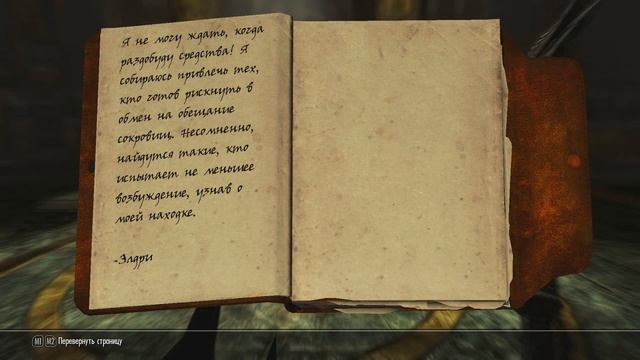 Я не могу ждать, когда
раздобуду средства! Я
собираюсь привлечь тех,
кто готов рискнуть в
обмен на обещание
сокровищ. Несомненно,
найдутся такие, кто
испытает не меньшее
возбуждение, узнав о
моей находке.
-Элдри
M1 M2 Перевернуть страницу